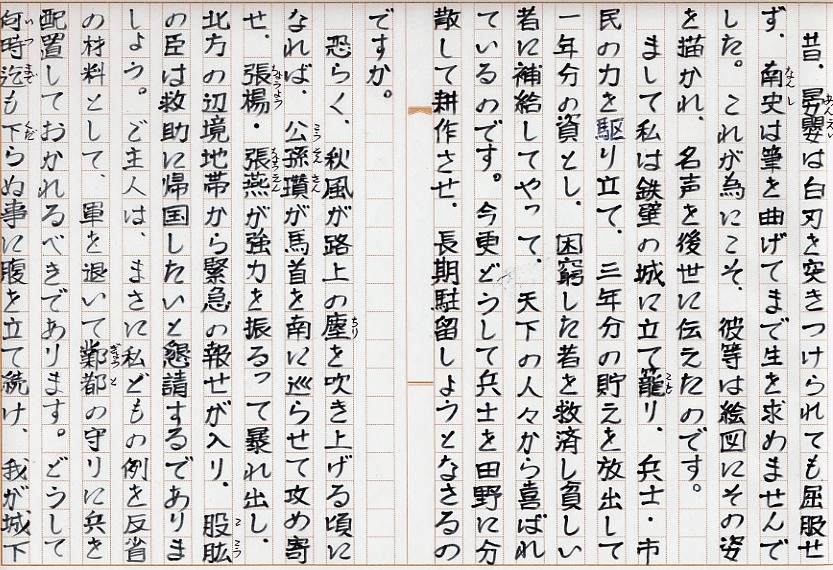 昔、晏嬰は白刃を突きつけられても屈服せ
ず、南史は筆を曲げてまで生を求めませんで
した。これが為にこそ、彼等は絵図にその姿
を描かれ、名声を後世に伝えたのです。
まして私は鉄壁の城に立て籠り、兵士・市
民の力を駆り立て、三年分の貯えを放出して
一年分の資とし、困窮した者を救済し貧しい
者に補給してやって、天下の人々から喜ばれ
ているのです。今更どうして兵士を田野に分
散して耕作させ、長期駐留しようとなさるの
ですか。
恐らく、秋風が路上の塵を吹き上げる頃に
なれば、公孫瓚が馬首を南に巡らせて攻め寄
せ、張楊・張燕が強力を振るって暴れ出し、
北方の辺境地帯から緊急の報せが入り、股肱
の臣は救助に帰国したいと懇請するでありま
しょう。ご主人は、まさに私どもの例を反省
の材料として、軍を退いて鄴都の守りに兵を
配置しておかれるべきであります。どうして
何時迄も下らぬ事に腹を立て続け、我が城下